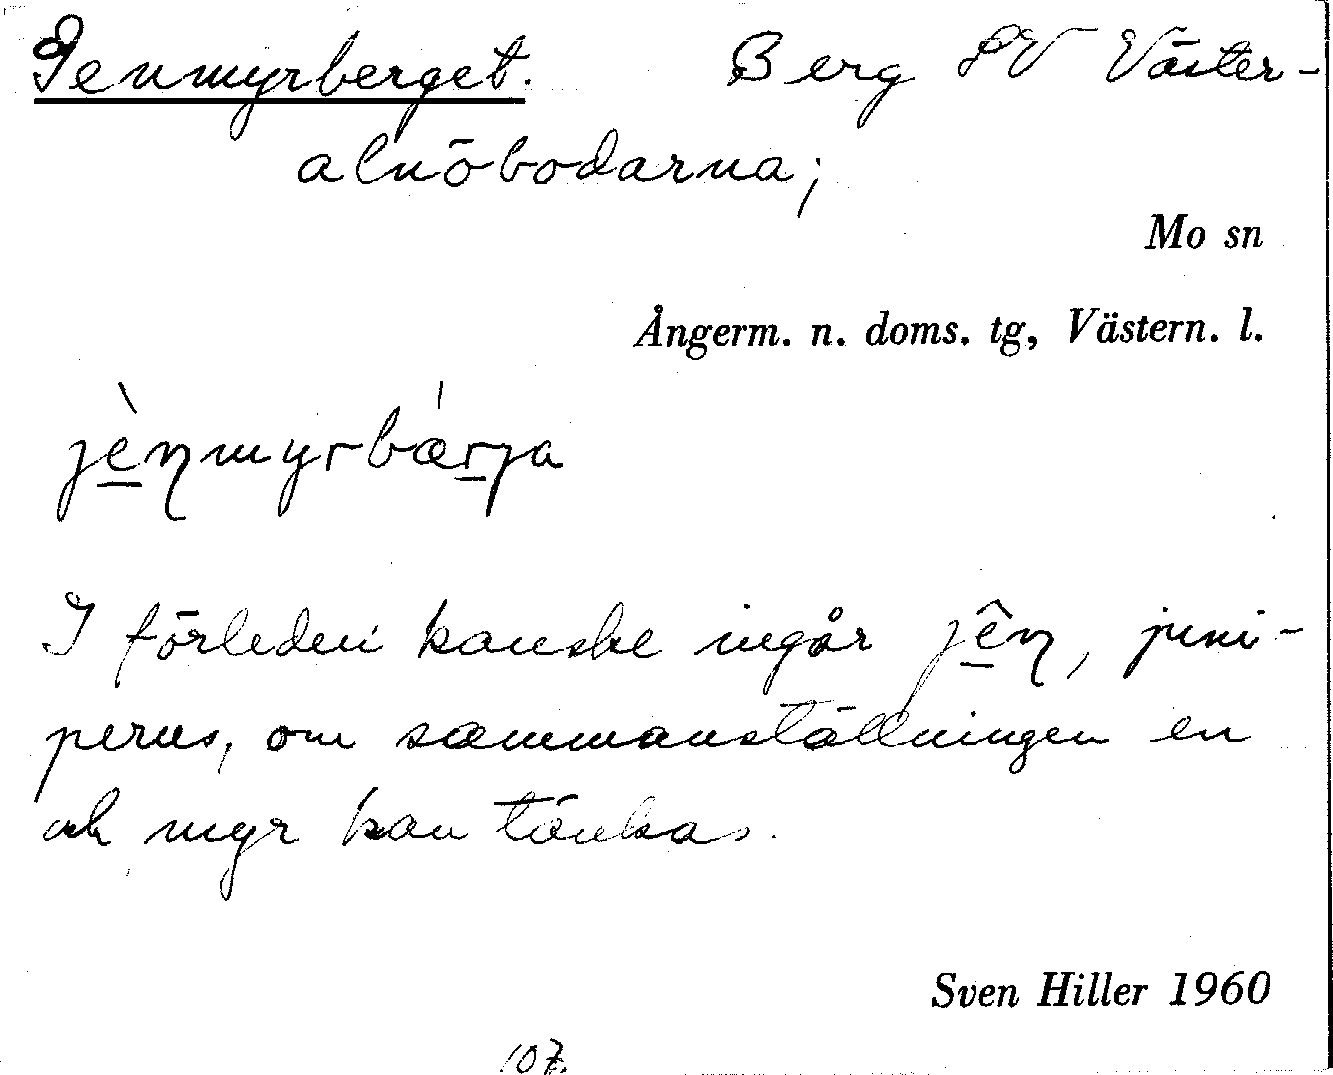 Genmyrberget. Berg SV Väster-
alnöbodarna;
Mo sn
Ångerm. n. doms. tg, Västern. l.
jèŋmyrbǽrja
I förleden kanske ingår jêŋ, juni-
perus, om sammanställningen en
och myr kan tänkas.
Sven Hiller 1960
107.